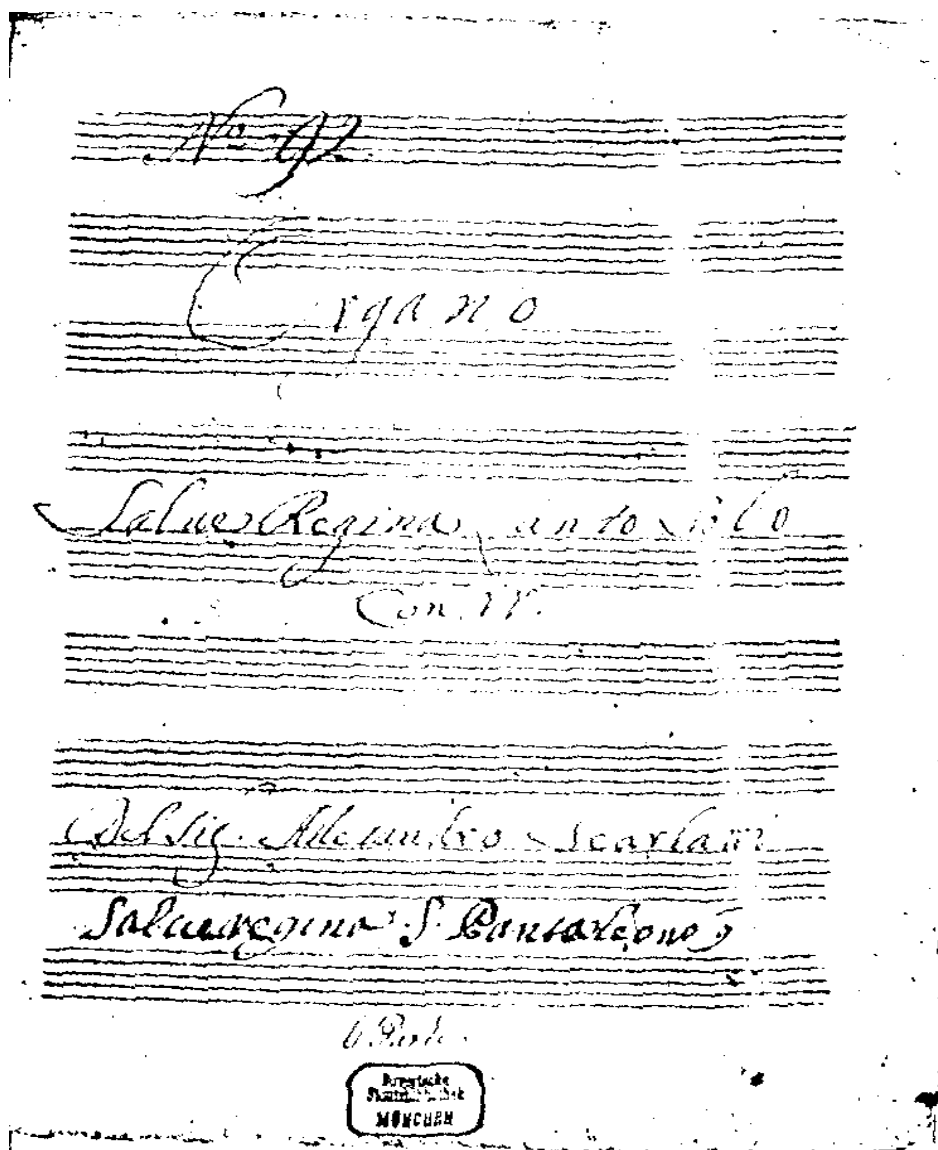 Nº 92
Organo
Salve Regina canto Solo
Con VV.
Del Sig. Alesandro Scarlatti
Salue regina S. Pantaleone
6 Parti.
Bayerische
Staatsbibliothek
MÜNCHEN